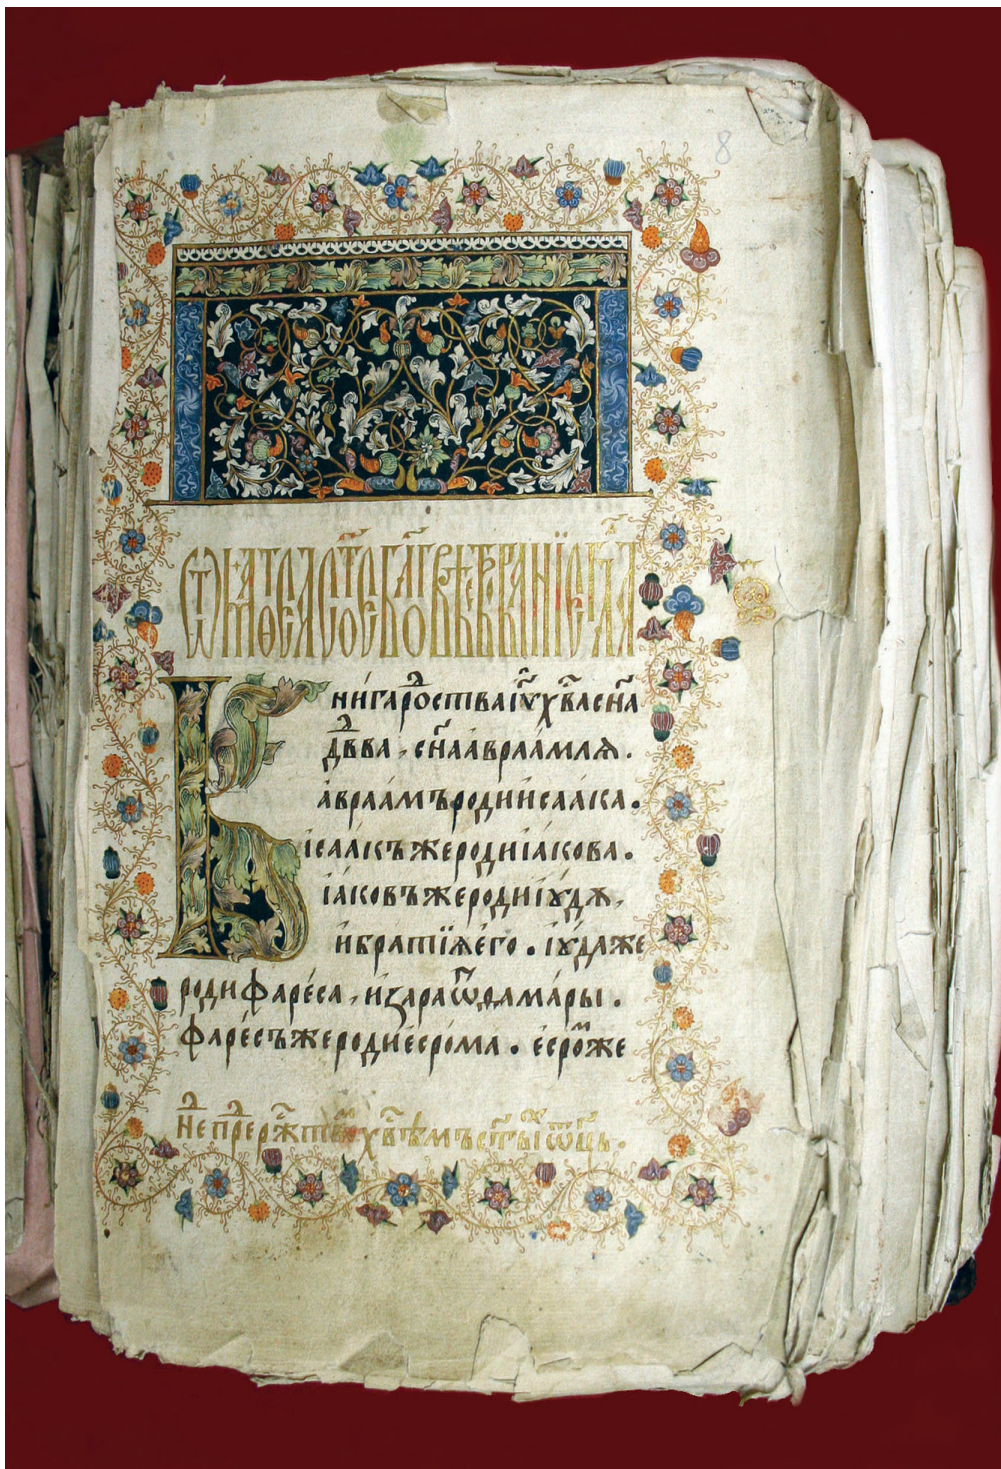 8
Ѿ маѳеа ст҃ое бл҃говѣствованїе
Кни́га рⷪ҇ства і҆ү҃ хв҃а сн҃а
дв҃да, сн҃а а҆враа́млѧ.
а҆враа́мъ родѝ і҆саа́ка.
і҆саа́къ же родѝ і҆а́кова.
і҆а́ковъ же родѝ і҆ꙋ́дꙋ,
и҆ бра́тїѧ є҆го̀. і҆ꙋ́да же
родѝ фаре́са, и҆ за́ра ѿ ѳама́ры.
фаре́съ же родѝ є҆сро́ма. є҆сро́мъ же
Нeⷣ прⷣе рж҃твоⷨ хв҃ѣмъ ст҃ы́хъ ѻ҆ц҃ъ.